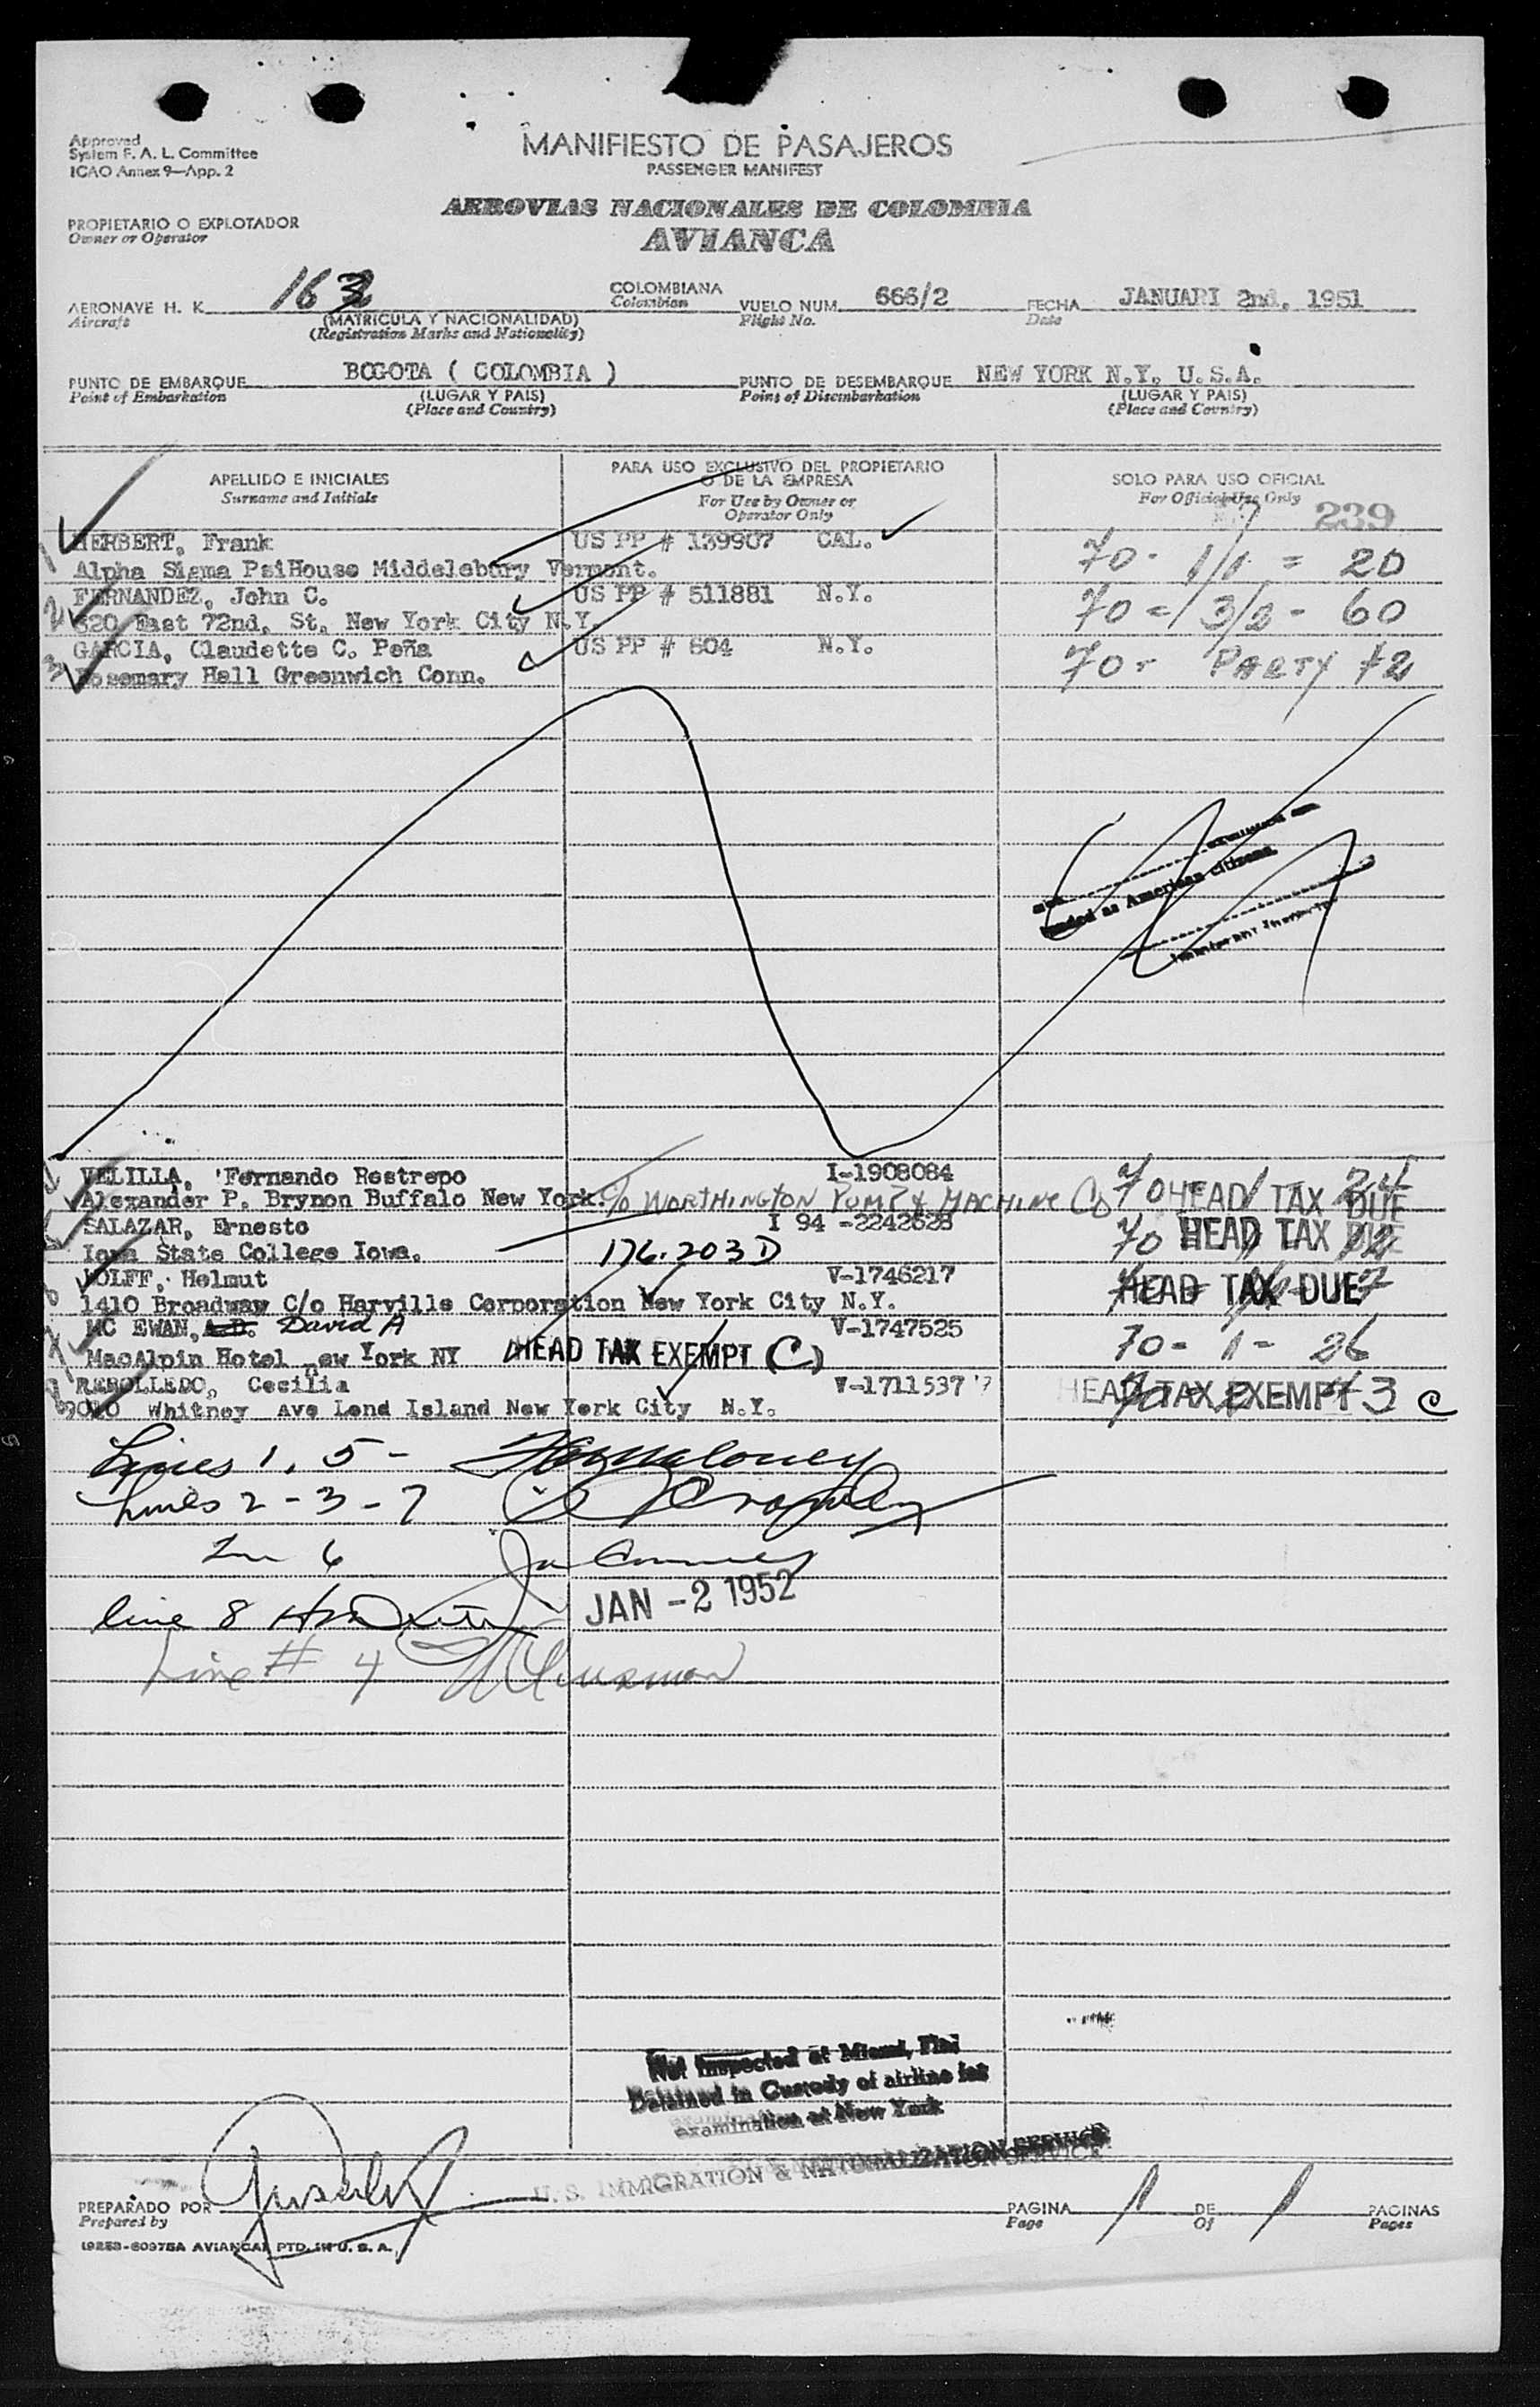 Approved
System F. A. L. Committee
ICAO Annex 9—App. 2
MANIFIESTO DE PASAJEROS
PASSENGER MANIFEST
PROPIETARIO O EXPLOTADOR
Owner or Operator
AEROVIAS NACIONALES DE COLOMBIA
AVIANCA
AERONAVE H. K. 163 COLOMBIANA VUELO NUM. 666/2 FECHA JANUARI 2nd, 1951
Aircraft (MATRICULA Y NACIONALIDAD) Colombian Flight No. Date
(Registration Marks and Nationality)
PUNTO DE EMBARQUE BOGOTA ( COLOMBIA ) PUNTO DE DESEMBARQUE NEW YORK N.Y. U.S.A.
Point of Embarkation (LUGAR Y PAIS) Point of Disembarkation (LUGAR Y PAIS)
(Place and Country) (Place and Country)
APELLIDO E INICIALES PARA USO EXCLUSIVO DEL PROPIETARIO O DE LA EMPRESA SOLO PARA USO OFICIAL
Surname and Initials For Use by Owner or Operator Only For Official Use Only
239
1 HERBERT, Frank US PP # 139907 CAL. 70 - 1/1 = 20
Alpha Sigma PsiHouse Middelebury Vermont.
2 FERNANDEZ, John C. US PP # 511881 N.Y. 70 = 3/2 - 60
620 East 72nd, St, New York City N.Y.
3 GARCIA, Claudette C. Peña US PP # 604 N.Y. 70 - PARTY #2
Rosemary Hall Greenwich Conn.
landed as American citizens.
VELILLA, Fernando Restrepo I-1908084 70 1 24
Alexander P. Brynon Buffalo New York. c/o WORTHINGTON PUMP & MACHINE Co HEAD TAX DUE
SALAZAR, Ernesto I 94 -2242628 70 HEAD TAX DUE
Iowa State College Iowa. 176.203 D
WOLFF, Helmut V-1746217 HEAD TAX DUE
1410 Broadway C/o Harville Corporation New York City N.Y.
MC EWAN, A.D. David A V-1747525 70 - 1 - 26
MacAlpin Hotel New York NY HEAD TAX EXEMPT (C)
REBOLLEDO, Cecilia V-1711537 HEAD TAX EXEMPT 3 C
9020 Whitney Ave Lond Island New York City N.Y.
Lines 1, 5 - Maloney
Lines 2 - 3 - 7
6
JAN - 2 1952
line 8
Line # 4
Not Inspected at Miami, Fla.
Detained in Custody of airline for
examination at New York
U. S. IMMIGRATION & NATURALIZATION SERVICE
PREPARADO POR PAGINA 1 DE 1 PAGINAS
Prepared by Page Of Pages
AVIANCA, PTD. IN U. S. A.